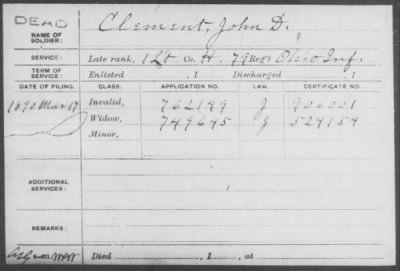 DEAD
NAME OF SOLDIER: Clement, John D.
SERVICE: Late rank, 1 Lt Co. H. 79 Reg't Ohio Inf.
TERM OF SERVICE: Enlisted , 1 Discharged , 1
DATE OF FILING. CLASS. APPLICATION NO. LAW. CERTIFICATE NO.
1890 Mar 17 Invalid, 762149 J 906001
Widow, 749645 J 524154
Minor,
ADDITIONAL SERVICES: 1
REMARKS:
Died , 1 , at